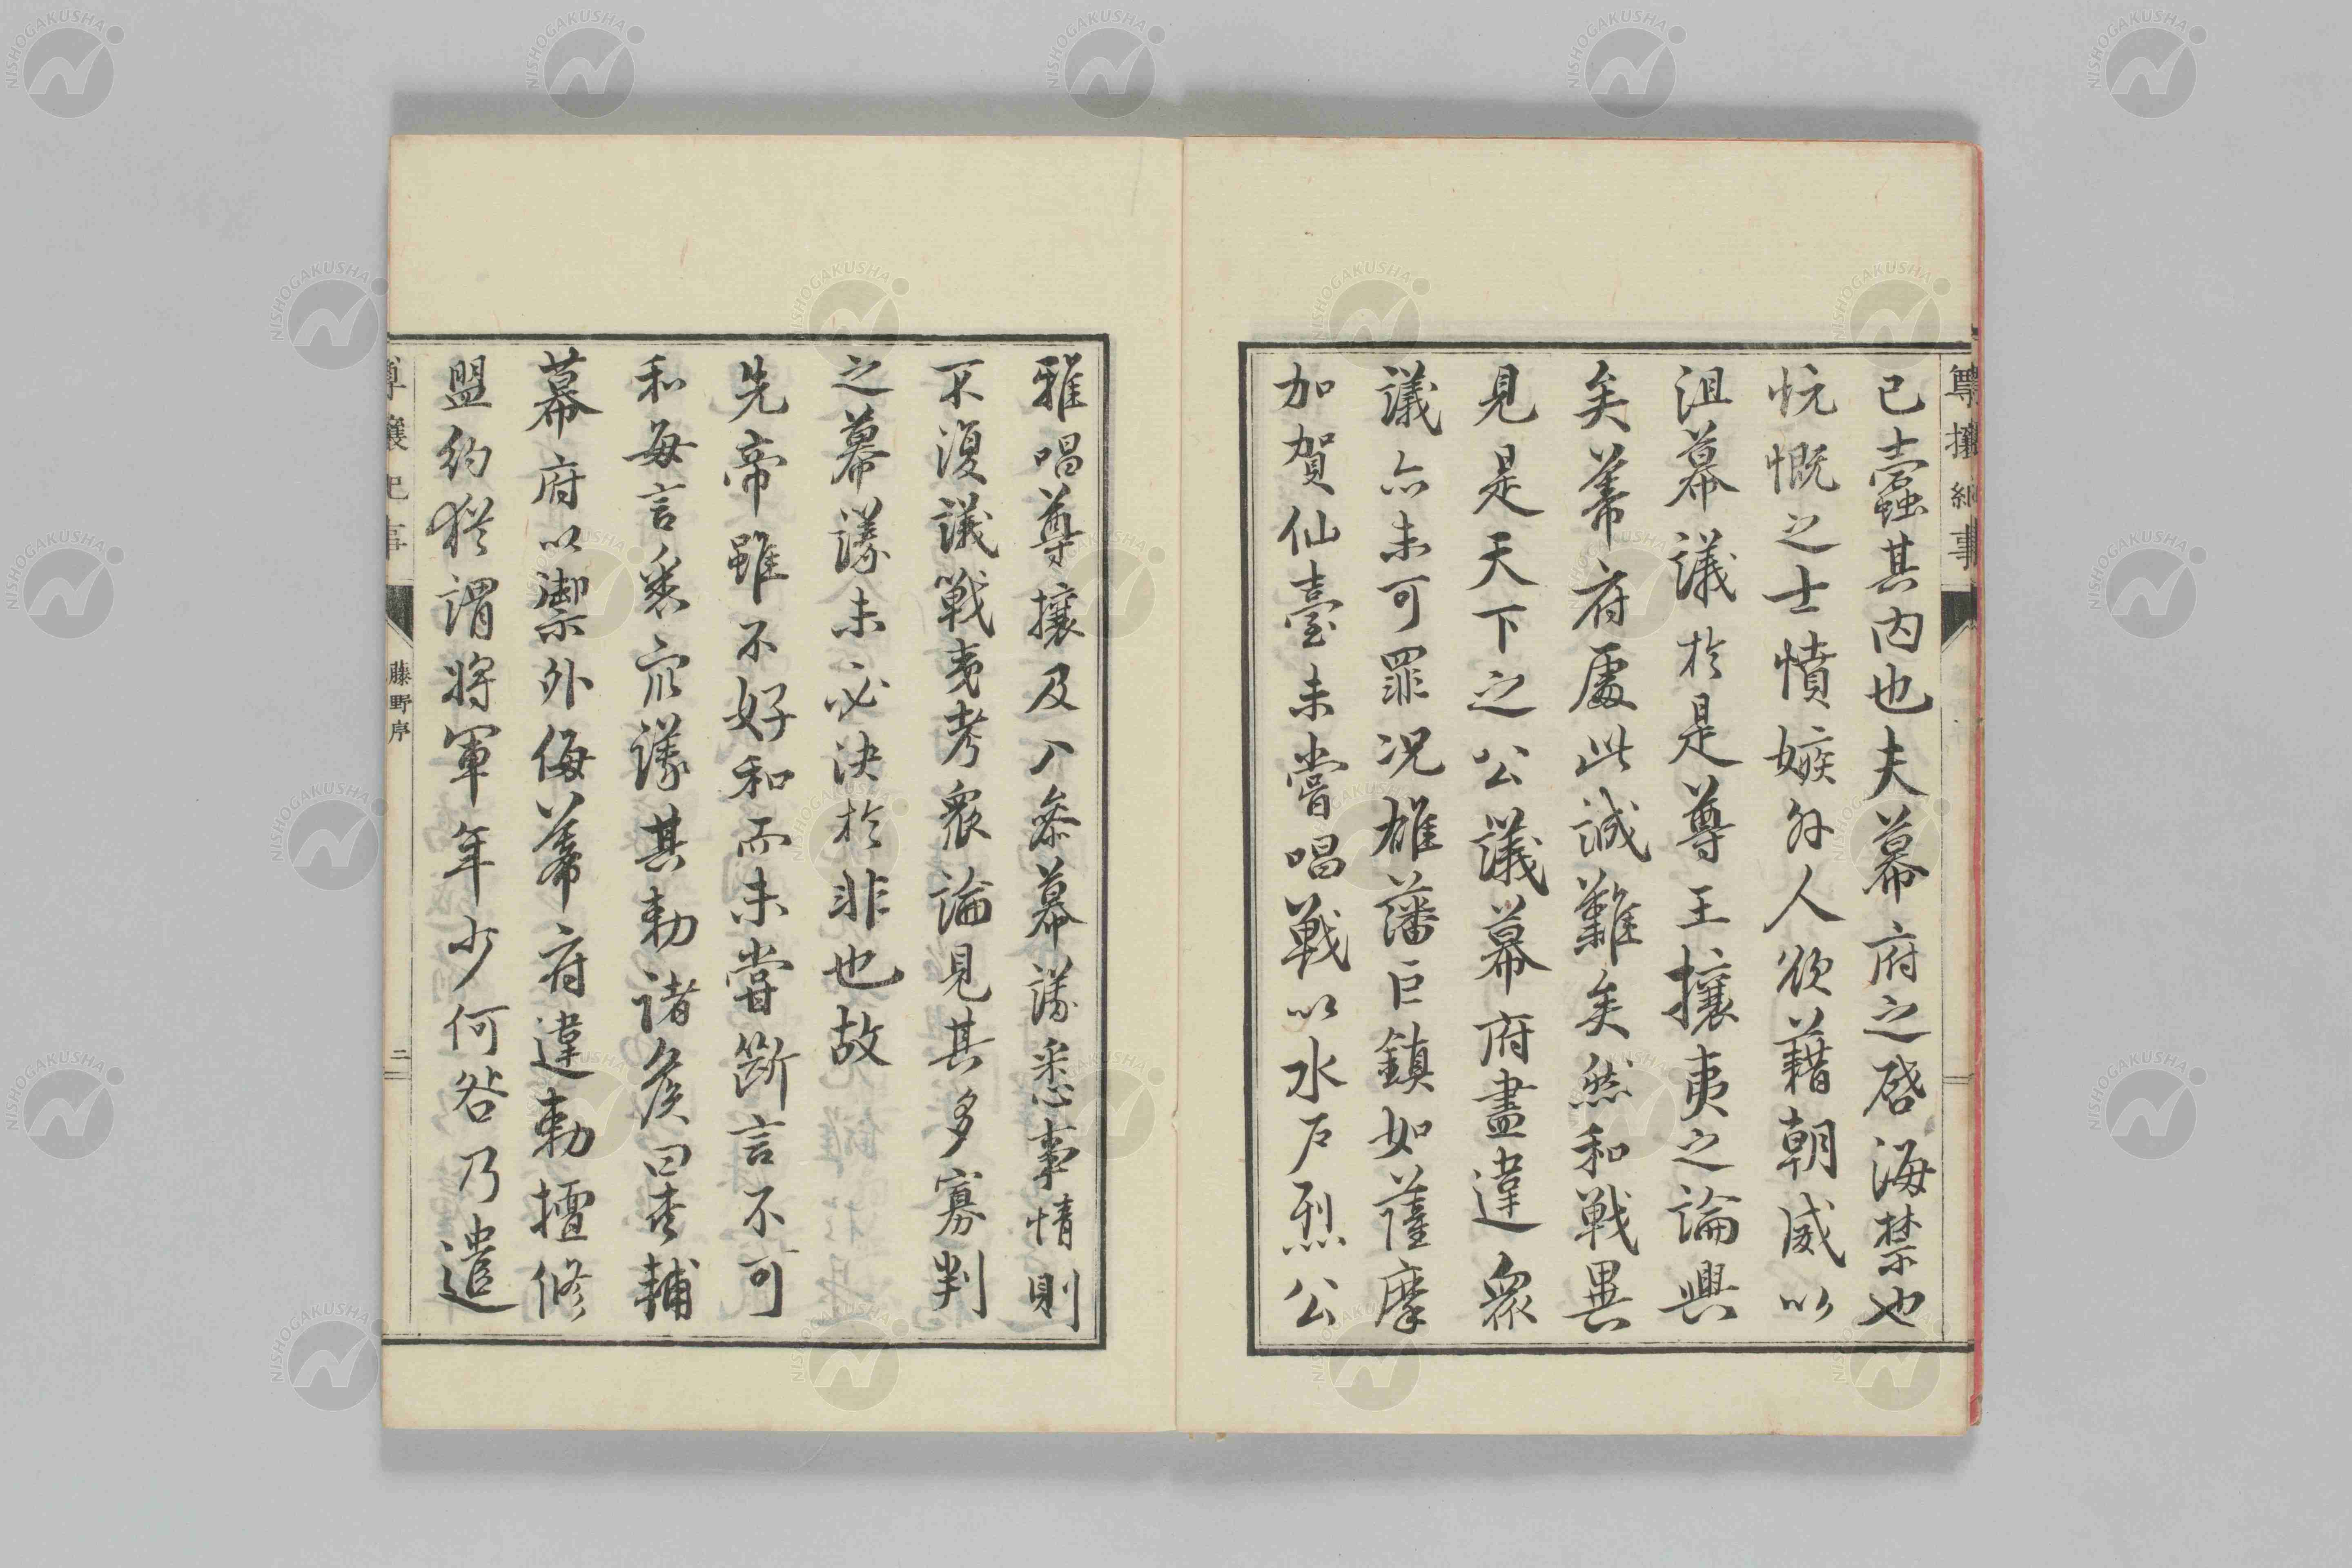 尊攘紀事
已蠧其内也夫幕府之啓海禁也
忼慨之士憤嫉外人欲藉朝威以
沮幕議於是尊王攘夷之論興
矣幕府處此誠難矣然和戰異
見是天下之公議幕府盡違衆
議亦未可罪况雄藩巨鎮如薩摩
加賀仙臺未嘗唱戰以水戶烈公
雅唱尊攘及入參幕議悉事情則
不復議戰夷考衆論見其多寡判
之幕議未必決於非也故
先帝雖不好和而未嘗斷言不可
和每言從衆議其勅諸侯曰夾輔
幕府以禦外侮幕府違勅擅修
盟約猶謂將軍年少何咎乃遣
尊攘紀事
藤野序
二
NISHOGAKUSHA